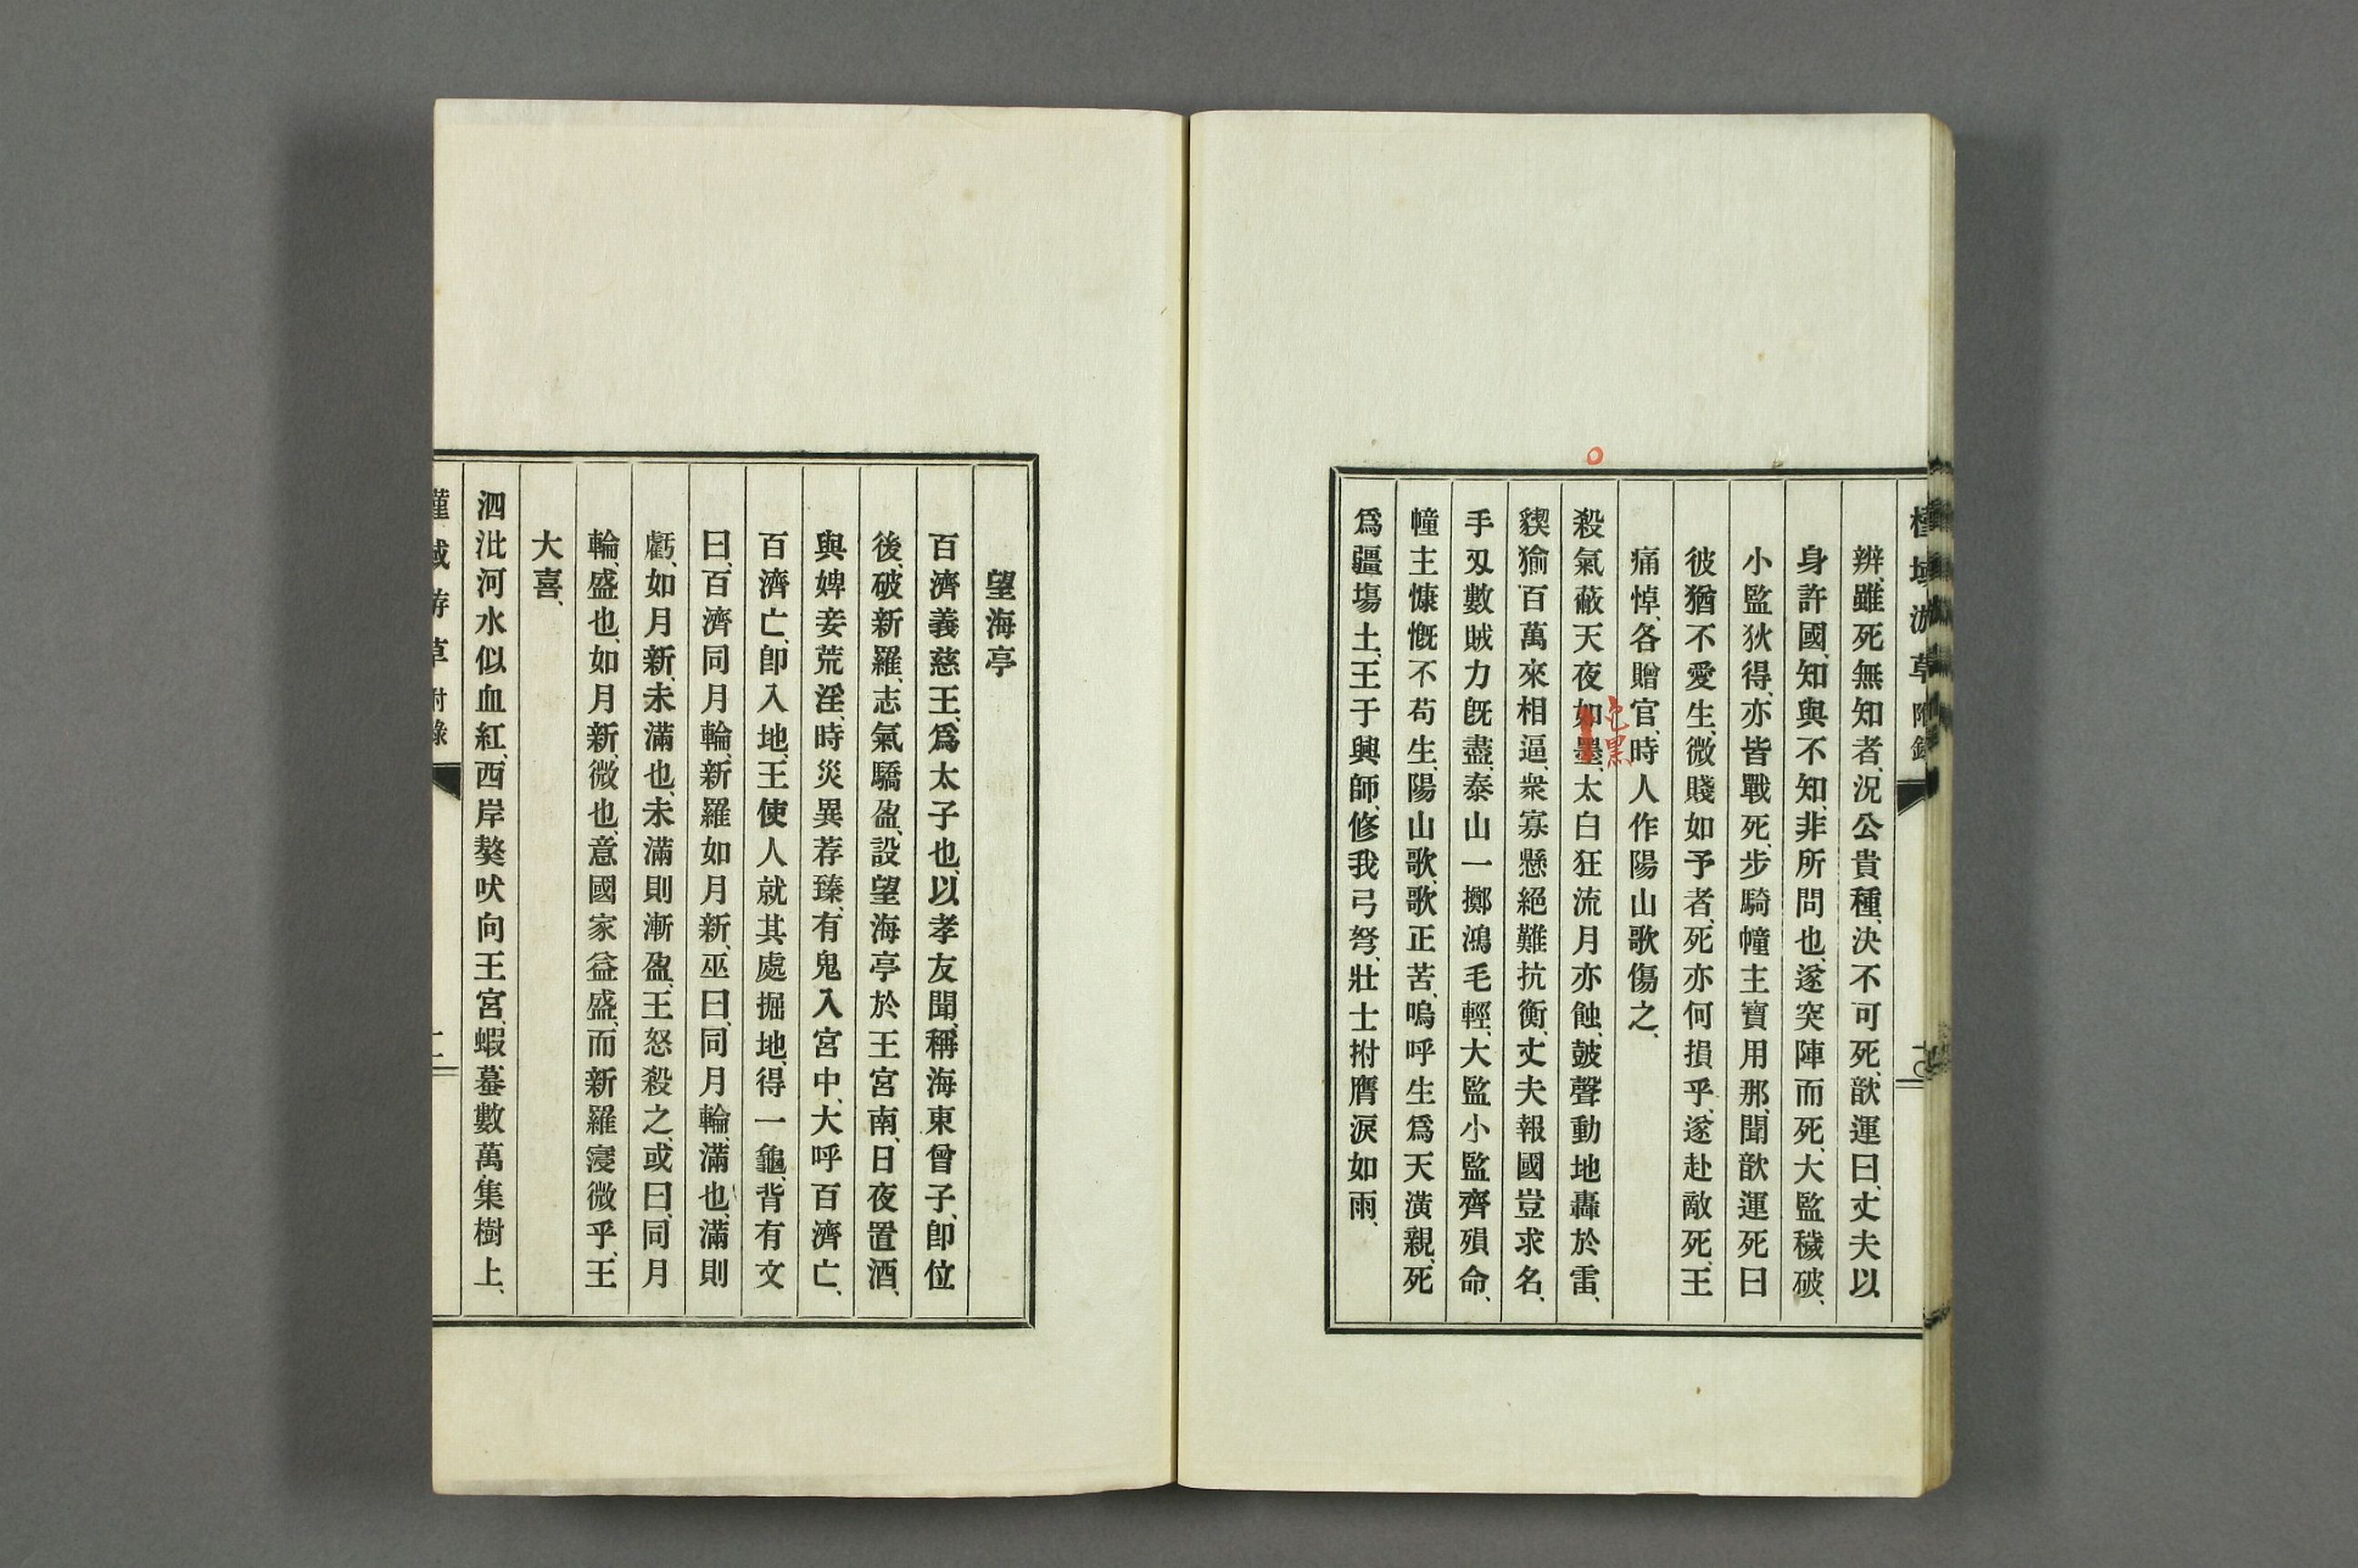 辨、雖死無知者、況公貴種、決不可死、歆運曰、丈夫以
身許國、知與不知、非所問也、遂突陣而死、大監穢破、
小監狄得、亦皆戰死、步騎幢主寶用那、聞歆運死曰
彼猶不愛生、微賤如予者、死亦何損乎、遂赴敵死、王
痛悼、各贈官、時人作陽山歌傷之、
殺氣蔽天夜如墨、太白狂流月亦蝕、鼓聲動地轟於雷、
色黑
猰㺄百萬來相逼、衆寡懸絕難抗衡、丈夫報國豈求名、
手刃數賊力既盡、泰山一擲鴻毛輕、大監小監齊殞命、
幢主慷慨不苟生、陽山歌、歌正苦、嗚呼生爲天潢親、死
爲疆場土、王于興師、修我弓弩、壯士拊膺淚如雨、
望海亭
百濟義慈王、爲太子也、以孝友聞、稱海東曾子、卽位
後、破新羅、志氣驕盈、設望海亭於王宮南、日夜置酒、
與婢妾荒淫、時災異荐臻、有鬼入宮中、大呼百濟亡、
百濟亡、卽入地、王使人就其處掘地、得一龜、背有文
曰、百濟同月輪、新羅如月新、巫曰、同月輪、滿也、滿則
虧、如月新、未滿也、未滿則漸盈、王怒殺之、或曰、同月
輪、盛也、如月新、微也、意國家益盛、而新羅寖微乎、王
大喜、
泗沘河水似血紅、西岸獒吠向王宮、蝦蟇數萬集樹上、
域游草 附錄